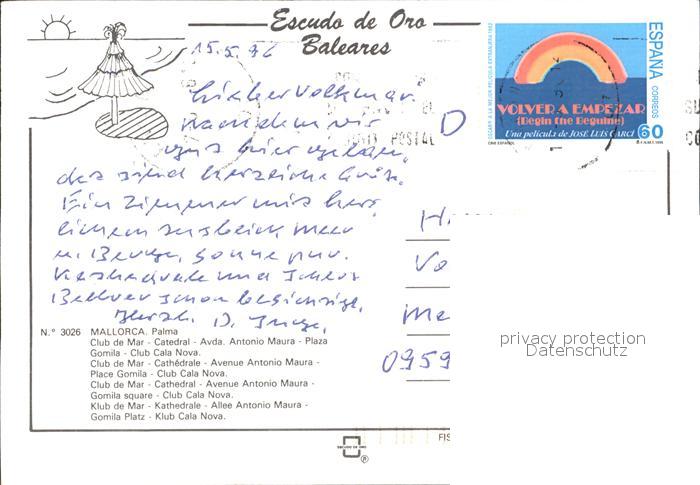 Escudo de Oro
Baleares
15.5.96
Lieber Volkmar
nachdem wir
uns hier
das sind herzliche Grüße.
Ein Zimmer mit herr
lichem Meer
u. Berge, Sonne pur.
Kathedrale und Schloss
Bellver schon besichtigt.
Herzl. D.
D
H
Vo
Me
0959
ESPAÑA
CORREOS
VOLVER A EMPEZAR
(Begin the Beguine)
Una película de JOSÉ LUIS GARCI
60
CINE ESPAÑOL
POSTAL
N.° 3026 MALLORCA. Palma
Club de Mar - Catedral - Avda. Antonio Maura - Plaza
Gomila - Club Cala Nova.
Club de Mar - Cathédrale - Avenue Antonio Maura -
Place Gomila - Club Cala Nova.
Club de Mar - Cathedral - Avenue Antonio Maura -
Gomila square - Club Cala Nova.
Klub de Mar - Kathedrale - Allee Antonio Maura -
Gomila Platz - Klub Cala Nova.
privacy protection
Datenschutz
FIS
ESCUDO DE ORO
®